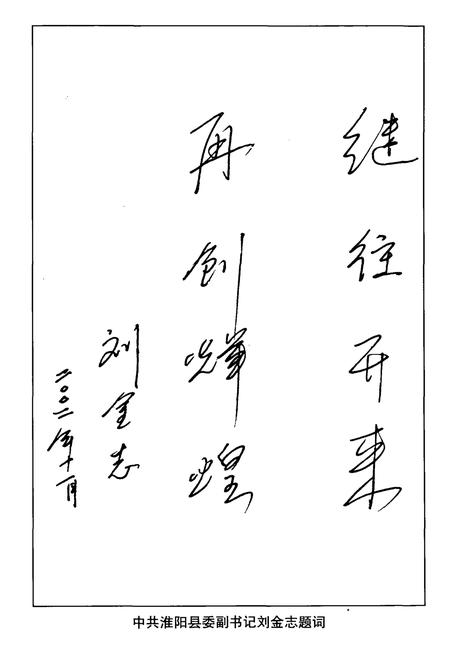 继往开来
再创辉煌
刘金志
二〇〇二年十一月
中共淮阳县委副书记刘金志题词